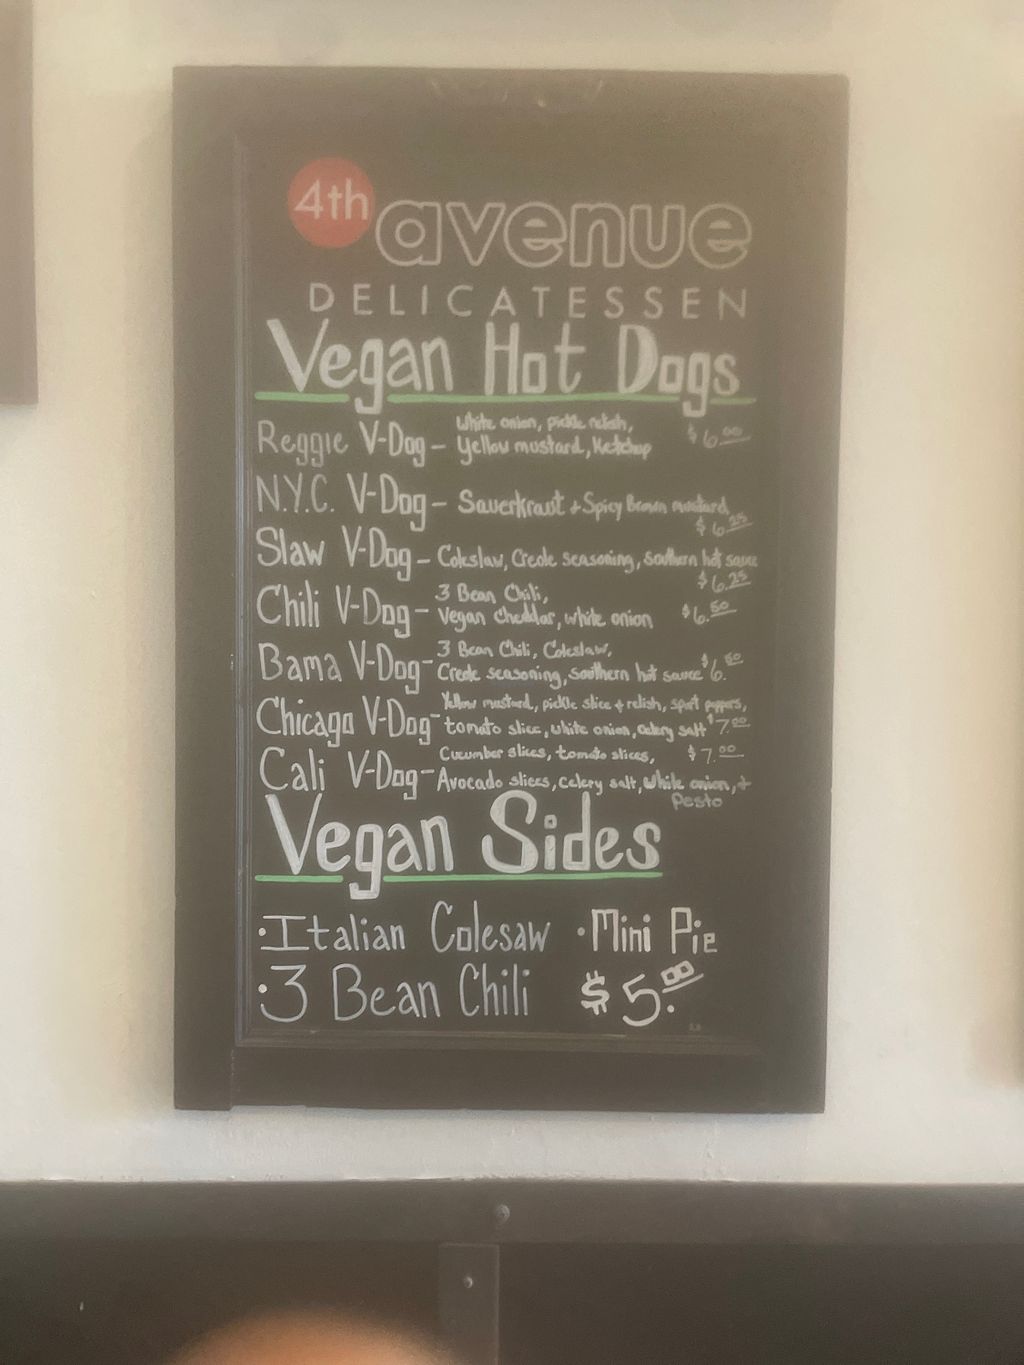 4th avenue
DELICATESSEN
Vegan Hot Dogs
Reggie V-Dog - White onion, pickle relish, $6.00
Yellow mustard, Ketchup
N.Y.C. V-Dog - Sauerkraut + Spicy Brown mustard,
$6.25
Slaw V-Dog - Coleslaw, Creole seasoning, Southern hot sauce
$6.25
Chili V-Dog - 3 Bean Chili,
Vegan Cheddar, white onion $6.50
Bama V-Dog - 3 Bean Chili, Coleslaw,
Creole seasoning, southern hot sauce $6.50
Chicago V-Dog - Yellow mustard, pickle slice + relish, sport peppers,
tomato slice, white onion, celery salt $7.00
Cali V-Dog - Cucumber slices, tomato slices, $7.00
Avocado slices, celery salt, white onion, +
Pesto
Vegan Sides
• Italian Colesaw • Mini Pie
• 3 Bean Chili $5.00